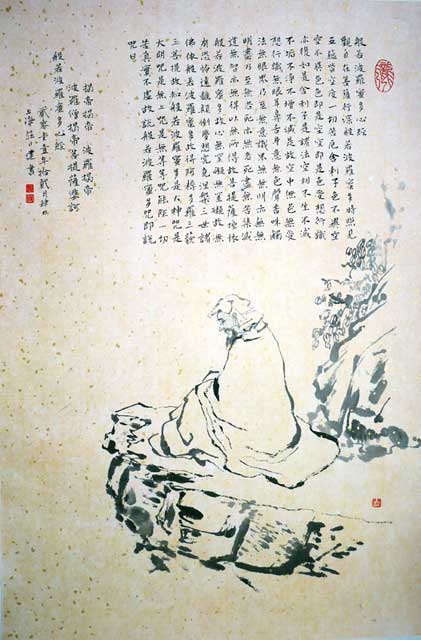 般若波羅蜜多心經
觀自在菩薩行深般若波羅蜜多時照見
五蘊皆空度一切苦厄舍利子色不異空
空不異色色即是空空即是色受想行識
亦復如是舍利子是諸法空相不生不滅
不垢不淨不增不減是故空中無色無受
想行識無眼耳鼻舌身意無色聲香味觸
法無眼界乃至無意識界無無明亦無無
明盡乃至無老死亦無老死盡無苦集滅
道無智亦無得以無所得故菩提薩埵依
般若波羅蜜多故心無罣礙無罣礙故無
有恐怖遠離顛倒夢想究竟涅槃三世諸
佛依般若波羅蜜多故得阿耨多羅三藐
三菩提故知般若波羅蜜多是大神咒是
大明咒是無上咒是無等等咒能除一切
苦真實不虛故說般若波羅蜜多咒即說
咒曰
揭帝揭帝 波羅揭帝
波羅僧揭帝菩提薩婆訶
般若波羅蜜多心經
貳零壹年拾貳月
上海建書